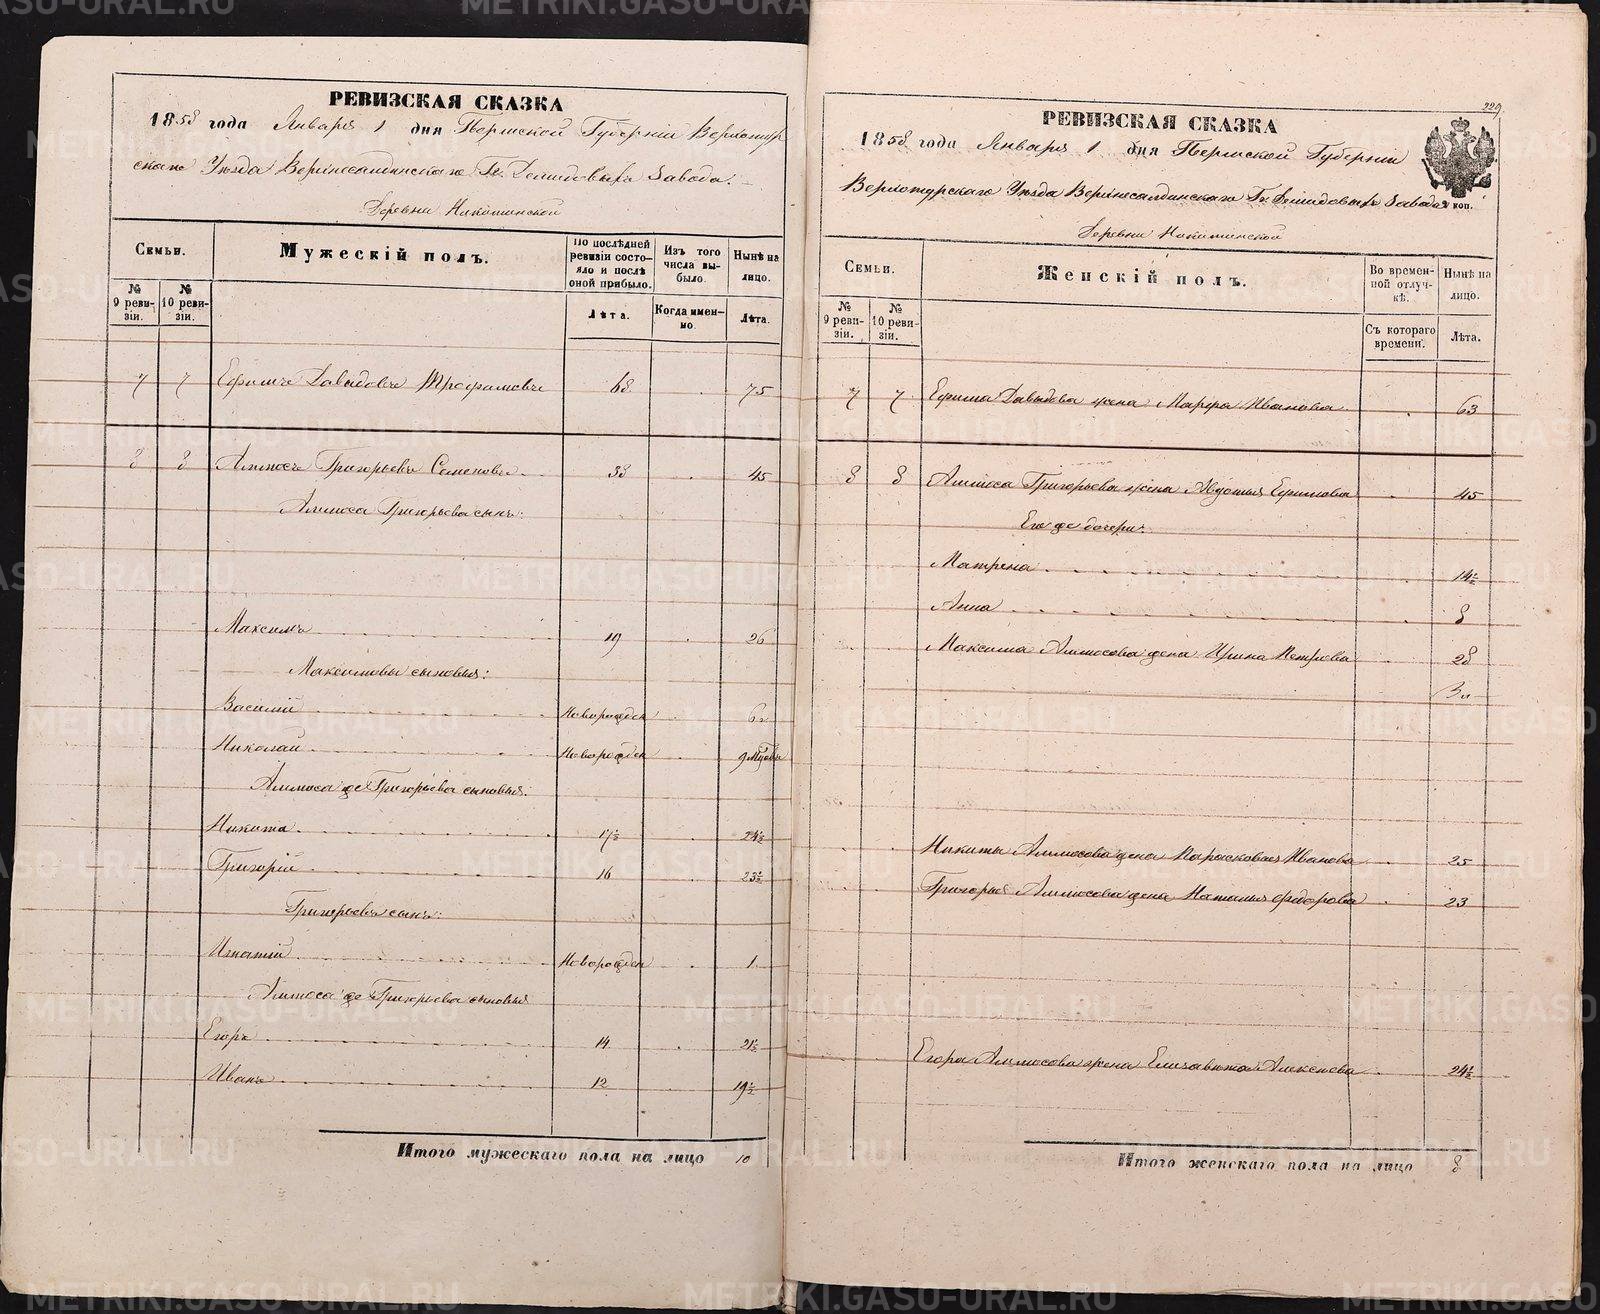 РЕВИЗСКАЯ СКАЗКА
1858 года Января 1 дня Пермской Губерніи Верхотур
скаго Уѣзда Верхнесалдинскаго Гг. Демидовыхъ Завода.
Деревни Никитинской
Семьи.
Мужескій полъ.
По послѣдней ревизіи состояло и послѣ оной прибыло.
Изъ того числа выбыло.
Нынѣ на лицо.
№ 9 ревизіи.
№ 10 ревизіи.
Лѣта.
Когда именно.
Лѣта.
7 7 Ефимъ Давыдовъ Трофимовъ 68 75
8 8 Аммосъ Григорьевъ Семеновъ 38 45
Аммоса Григорьева сынъ:
Максимъ 19 26
Максимовы сыновья:
Василій Новорожден 6
Николай Новорожден 9
Аммоса же Григорьева сыновья:
Никита 17½ 24½
Григорій 16 23½
Григорьевъ сынъ:
Игнатій Новорожден 1
Аммоса же Григорьева сыновья
Егоръ 14 21½
Иванъ 12 19½
Итого мужескаго пола на лицо 10
229
РЕВИЗСКАЯ СКАЗКА
1858 года Января 1 дня Пермской Губерніи
Верхотурскаго Уѣзда Верхнесалдинскаго Гг. Демидовыхъ Завода
коп.
Деревни Никитинской
Семьи.
Женскій полъ.
Во временной отлучкѣ.
Нынѣ на лицо.
№ 9 ревизіи.
№ 10 ревизіи.
Съ котораго времени.
Лѣта.
7 7 Ефима Давыдова жена Марфа Иванова 63
8 8 Аммоса Григорьева жена Авдотья Ефимова 45
Его же дочери:
Матрена 14½
Анна 8
Максима Аммосова жена Ирина Петрова 28
Никиты Аммосова жена Парасковья Иванова 25
Григорья Аммосова жена Наталья Федорова 23
Егора Аммосова жена Елизавета Алексѣева 24½
Итого женскаго пола на лицо 8
METRIKI.GASO-URAL.RU